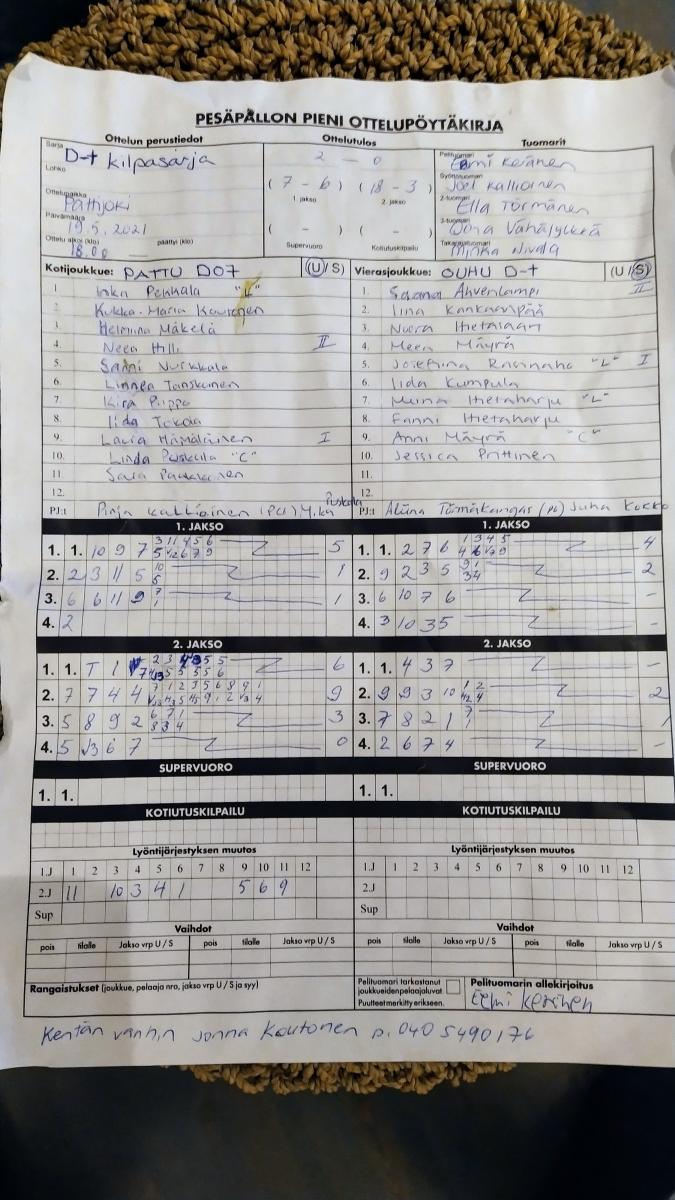 PESÄPALLON PIENI OTTELUPÖYTÄKIRJA
Ottelun perustiedot
Ottelutulos
Tuomarit
Sarja
D-t kilpasarja
Lohko
Ottelupaikka
Pattijoki
Päivämäärä
19.5.2021
Ottelu alkoi (klo) päättyi (klo)
18.00
2 - 0
(7 - 6) (18 - 3)
1. jakso 2. jakso
( - ) ( - )
Supervuoro Kotiutuskilpailu
Pelituomari
Eemi Keränen
Syöttötuomari
Joel Kallioinen
2-tuomari
Ella Törmänen
3-tuomari
Vähäjylkkä
Takarajatuomari
Minka Nivala
Kotijoukkue: PATTU D07 (U/S)
1. Inka Pekkala "L"
2. Kukka-Maria
3. Helmiina Mäkelä
4. Neea Hilli II
5. Sanni Nurkkala
6. Linnea Tanskanen
7. Kira Piippo
8. Iida
9. Laura Hämäläinen I
10. Linda Puskala "C"
11. Sara
12.
PJ:t Pinja Kallioinen (PJ) Mika Puskala
Vierasjoukkue: OUHU D-t (U/S)
1. Saana Ahvenlampi II
2. Iina Kankaanpää
3. Noora
4. Meea Mäyrä
5. Josefiina "L" I
6. Iida Kumpula
7. Hietaharju "L"
8. Fanni Hietaharju
9. Anni Mäyrä "C"
10. Jessica Prittinen
11.
12.
PJ:t Törmäkangas (PJ) Juha Kokko
1. JAKSO
1. 1. 10 9 7 5
2. 2 3 11 5 1
3. 6 6 11 9 1
4. 2
1. JAKSO
1. 1. 2 7 6 4
2. 9 2 3 5 2
3. 6 10 7 6 -
4. 3 10 3 5 -
2. JAKSO
1. 1. T 1 6
2. 7 7 4 4 9
3. 5 8 9 2 3
4. 5 J3 6 7 0
2. JAKSO
1. 1. 4 3 7 -
2. 9 9 3 10 2
3. 7 8 2 1 1
4. 2 6 7 4 -
SUPERVUORO
1. 1.
SUPERVUORO
1. 1.
KOTIUTUSKILPAILU
KOTIUTUSKILPAILU
Lyöntijärjestyksen muutos
1.J 1 2 3 4 5 6 7 8 9 10 11 12
2.J 11 10 3 4 1 5 6 9
Sup
Lyöntijärjestyksen muutos
1.J 1 2 3 4 5 6 7 8 9 10 11 12
2.J
Sup
Vaihdot
pois tilalle Jakso vrp U / S pois tilalle Jakso vrp U / S
Vaihdot
pois tilalle Jakso vrp U / S pois tilalle Jakso vrp U / S
Rangaistukset (joukkue, pelaaja nro, jakso vrp U / S ja syy)
Pelituomari tarkastanut
joukkueiden pelaajaluvat.
Puutteet merkitty erikseen.
Pelituomarin allekirjoitus
Eemi Keränen
Kentän vanhin Jonna Koutonen p. 040 5490176